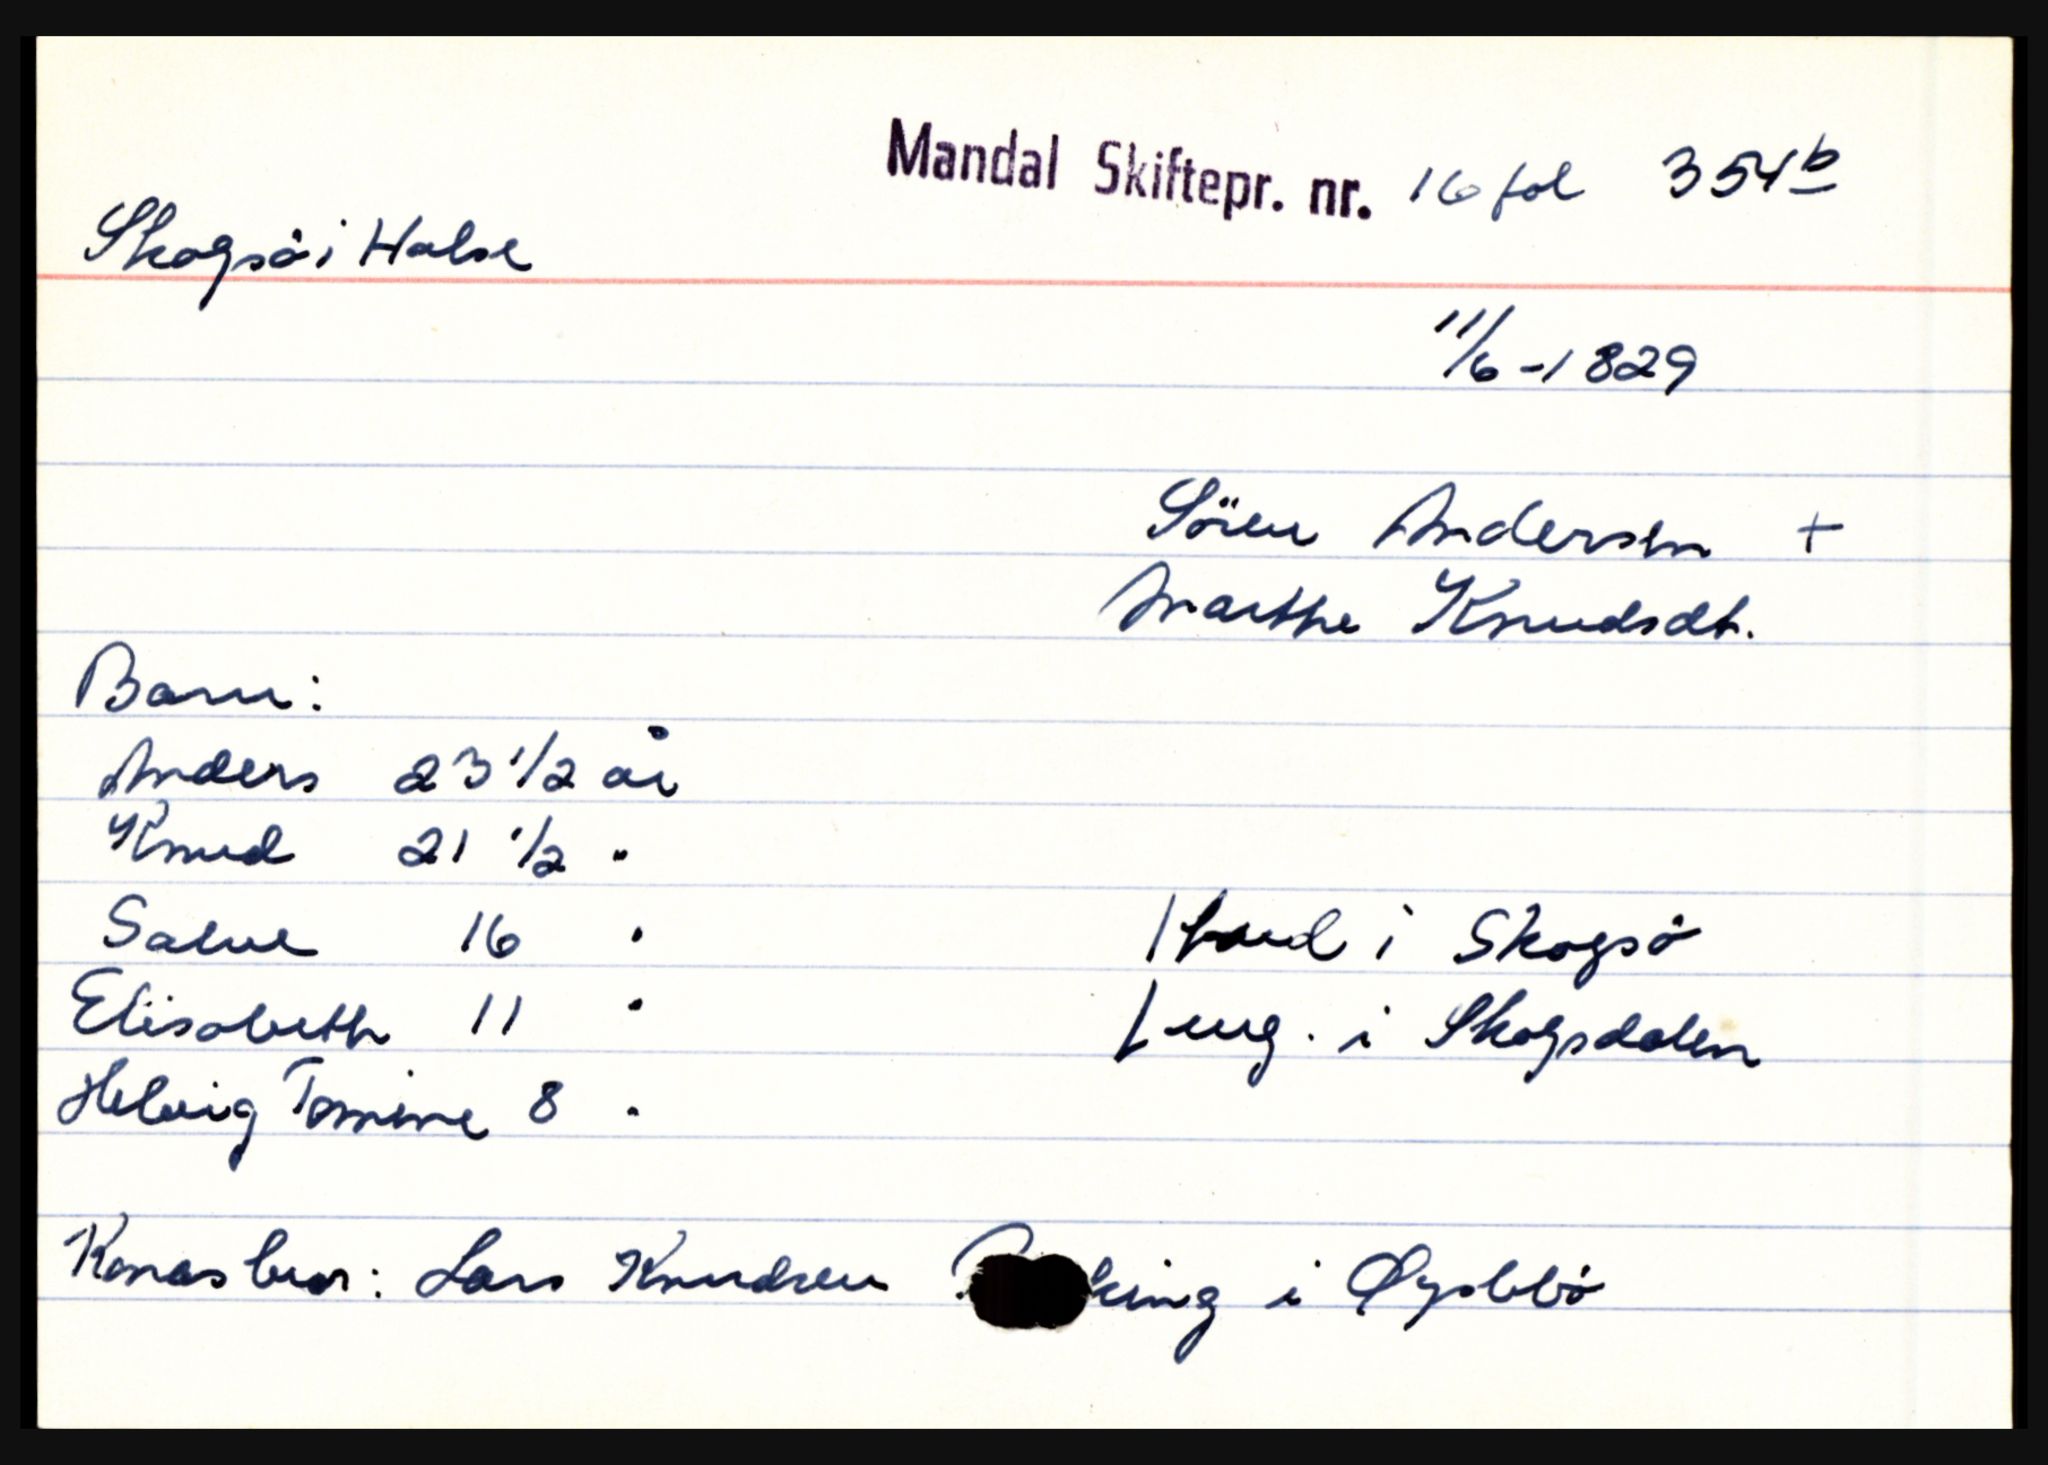 Mandal Skiftepr. nr. 16 fol 354b
Skogsö i Halse
11/6-1829
Sören Andersen +
Marthe Knudsdt.
Barn:
Anders 23 1/2 år
Knud 21 1/2 "
Salve 16 "
1 hud i Skogsö
Elisabeth 11 "
1 eng. i Skogsdalen
Helvig Tomine 8 "
Konas bror: Lars Knudsen i Øyslebö